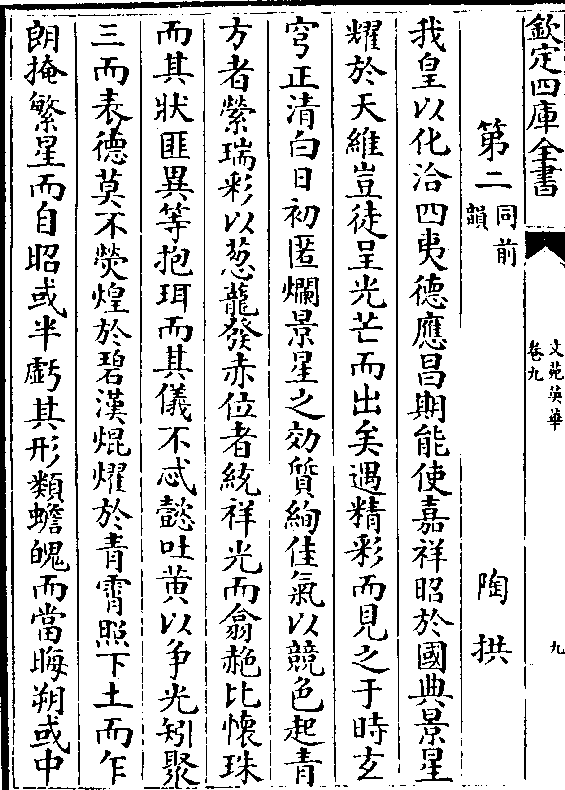 欽定四庫全書
文苑英華
卷九
九
第二同前韻 陶拱
我皇以化洽四夷德應昌期能使嘉祥昭於國典景星
耀於天維豈徒呈光芒而出矣遇精彩而見之于時玄
穹正清白日初匿爛景星之効質絢佳氣以競色起青
方者縈瑞彩以葱蘢發赤位者統祥光而翕赩比懷珠
而其狀匪異等抱珥而其儀不忒懿吐黄以争光矧聚
三而表德莫不熒煌於碧漢焜燿於青霄照下土而乍
朗掩繁星而自昭或半虧其形類蟾魄而當晦朔或中